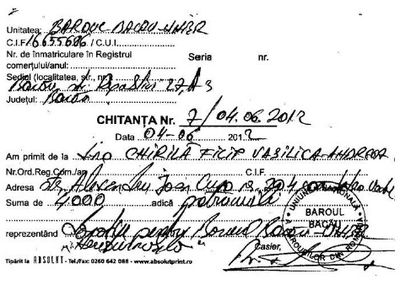 Unitatea: BAROUL BACAU UNBR
C.I.F. 16655686 / C.U.I. Seria nr.
Nr. de înmatriculare în Registrul
comerţului/anul:
Sediul (localitatea, str., nr.)
Bacau, str.
Judeţul: Bacau
CHITANŢA Nr. 7/04.06.2012
Data 04-06 2012
Am primit de la CHIRILĂ FILIP VASILICA-ANDREEA
Nr.Ord.Reg.Com./an C.I.F.
Adresa str. Alexandru Ioan Cuza
Suma de 4000 adică patru mii
reprezentând pentru Baroul Bacau - UNBR
Casier,
UNIUNEA NAŢIONALĂ A BAROURILOR DIN ROMÂNIA
BAROUL
BACĂU
Tipărit la ABSOLUT - Tel./Fax: 0260 642 088 - www.absolutprint.ro